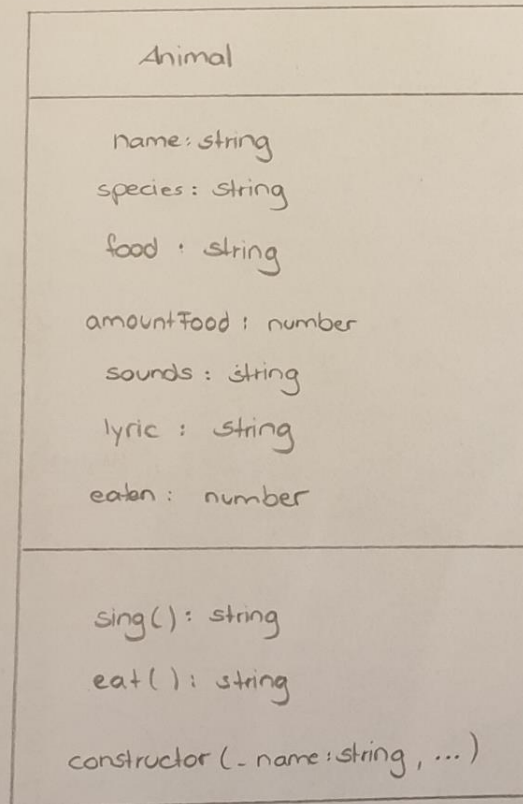 Animal
name: string
species: string
food : string
amountFood : number
sounds : string
lyric : string
eaten : number
sing() : string
eat() : string
constructor (_name: string, ...)